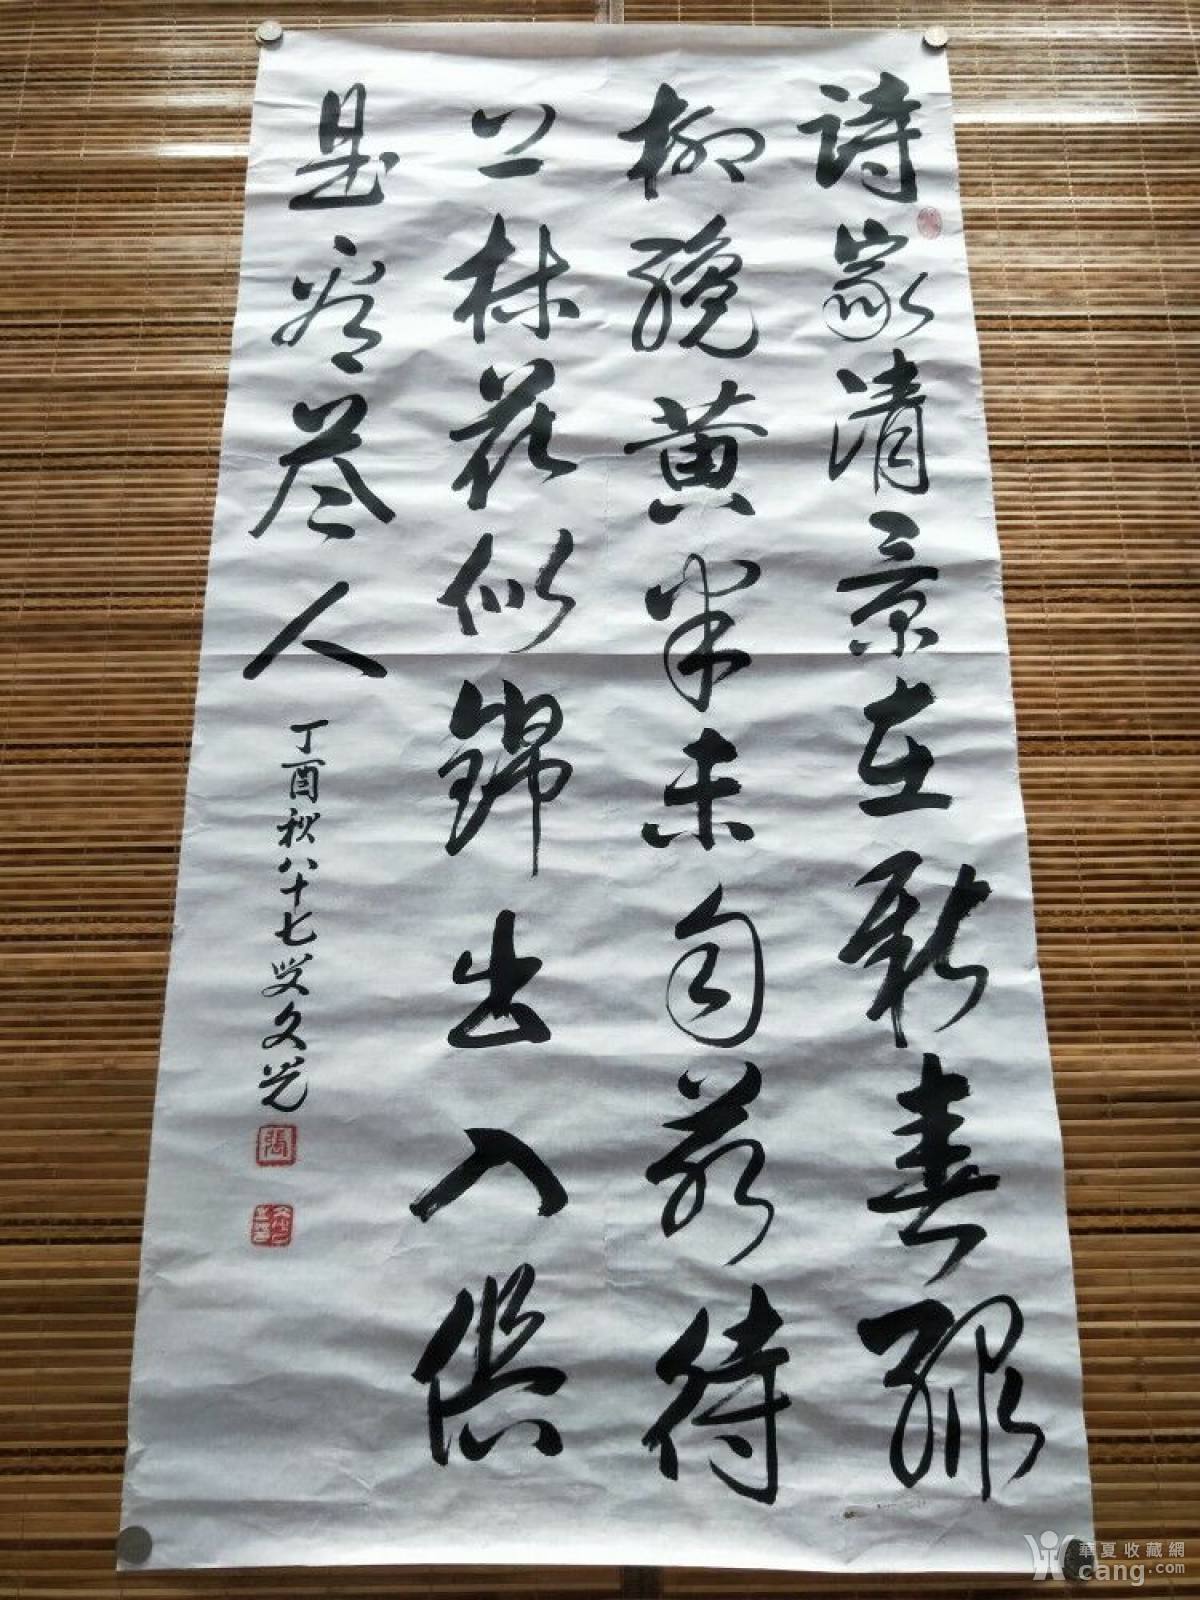 詩家清景在新春綠
柳纔黄半未匀若待
上林花似錦出門俱
是看花人
丁酉秋八十七叟文光
張
華夏收藏網
cang.com